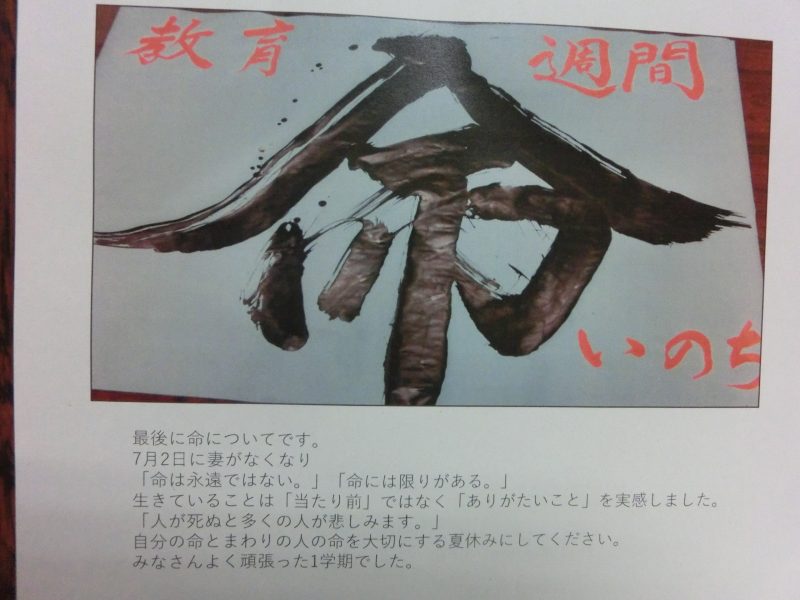 教育 週間
命
いのち
最後に命についてです。
7月2日に妻がなくなり
「命は永遠ではない。」「命には限りがある。」
生きていることは「当たり前」ではなく「ありがたいこと」を実感しました。
「人が死ぬと多くの人が悲しみます。」
自分の命とまわりの人の命を大切にする夏休みにしてください。
みなさんよく頑張った1学期でした。